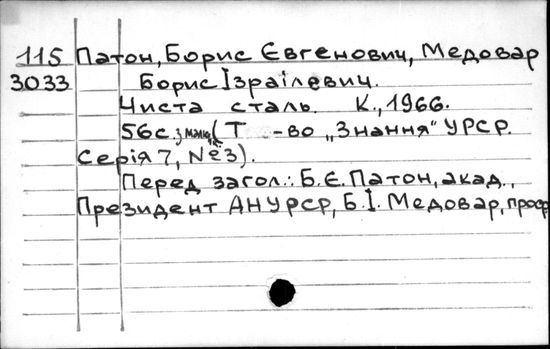 115 Патон, Борис Євгенович, Медовар
3033 Борис Ізраілевич.
Чиста сталь. К., 1966.
56с. з мал. (Т-во „Знання" УРСР.
Серія 7, №3).
Перед загол.: Б.Є. Патон, акад.,
Президент АН УРСР, Б.І. Медовар, проф